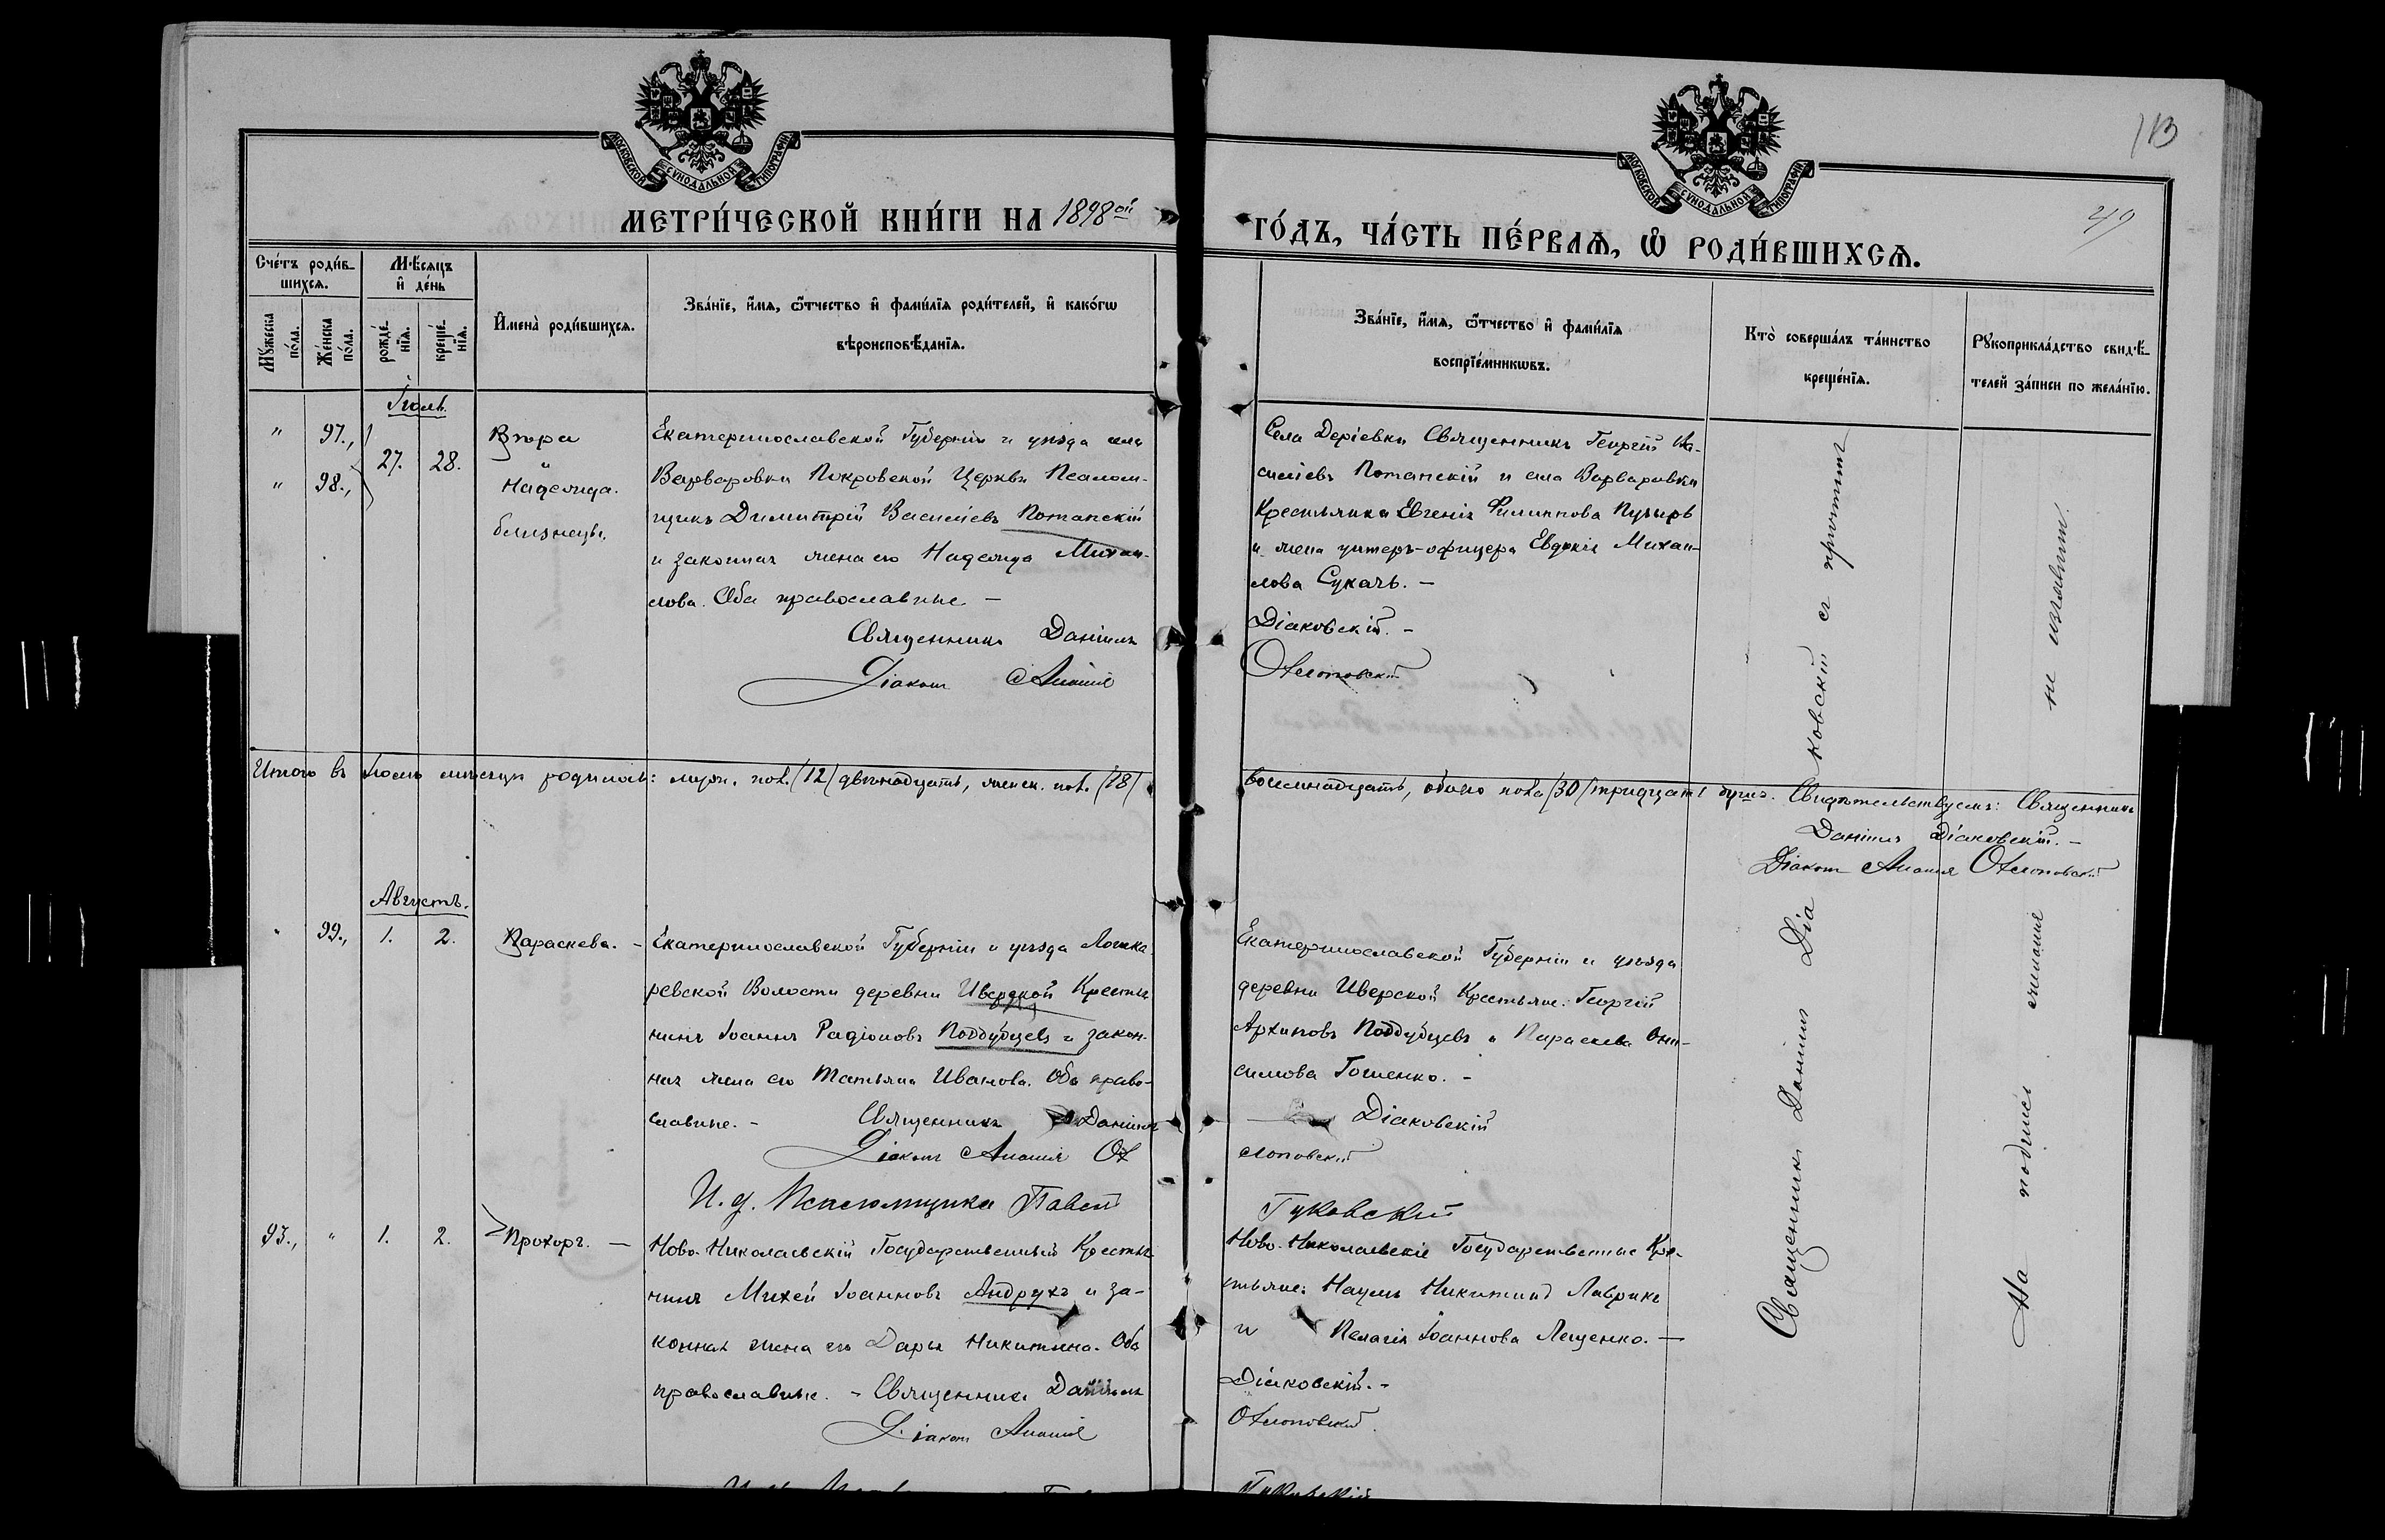 113
49
МОСКОВСКОЙ СѴНОДАЛЬНОЙ ТИПОГРАФІИ
МОСКОВСКОЙ СѴНОДАЛЬНОЙ ТИПОГРАФІИ
МЕТРИ́ЧЕСКОЙ КНИ́ГИ НА 1898ой
ГО́ДЪ, ЧА́СТЬ ПЕ́РВАѦ, Ѡ РОДИ́ВШИХСѦ.
Сче́тъ роди́в-
шихсѧ.
Мꙋ́жеска по́ла.
Же́нска по́ла.
Мѣ́сѧцъ и҆ де́нь
рожде́-нїѧ.
креще́-нїѧ.
И҆мена̀ роди́вшихсѧ.
Зва́нїе, и҆́мѧ, ѻ҆́тчество и҆ фами́лїѧ роди́телей, и҆ како́гѡ
вѣроисповѣ́данїѧ.
Зва́нїе, и҆́мѧ, ѻ҆́тчество и҆ фами́лїѧ
воспрїе́мникѡвъ.
Кто̀ соверша́лъ та́инство
креще́нїѧ.
Рꙋкоприкла́дство свидѣ́-
телей за́писи по жела́нїю.
Іюль.
" 97., 27. 28. Вѣра
" 98., и Надежда.
близнецы.
Екатеринославской Губерніи и уѣзда села
Варваровки Покровской Церкви Псалом-
щикъ Димитрій Василіевъ Потапскій
и законная жена его Надежда Михаи-
лова. Оба православные –
Священникъ Даніилъ
Діаконъ Ананія
Села Деріевки Священникъ Георгій Ва-
силіевъ Потапскій и села Варваровки
Крестьянка Евгенія Филиппова Пузырь
и жена унтеръ-офицера Евдокія Михаи-
лова Сукачъ. –
Діаковскій. –
Охлоповскій
Итого въ Іюлѣ мѣсяцѣ родилось: муж. пол. (12) двѣнадцать, женск. пол. (18)
восемнадцать, обоего пола (30) тридцать душъ. Свидѣтельствуемъ: Священникъ
Даніилъ Діаковскій. –
Діаконъ Ананія Охлоповскій
Августъ.
" 99., 1. 2. Параскева. –
Екатеринославской Губерніи и уѣзда Лошка-
ревской Волости деревни Иверской Крестья-
нинъ Іоаннъ Радіоновъ Поддубцевъ и закон-
ная жена его Татьяна Иванова. Оба право-
славные. – Священникъ Даніилъ
Діаконъ Ананія Ох
И. д. Псаломщика Павелъ
Екатеринославской Губерніи и уѣзда
деревни Иверской Крестьяне: Георгій
Архиповъ Поддубцевъ и Параскева Они-
симова Гошенко. –
Діаковскій
лоповскій
Гуковскій
93., " 1. 2. Прохоръ. –
Ново-Николаевскій Государственный Крестья-
нинъ Михей Іоанновъ Андрухъ и за-
конная жена его Дарья Никитина. Оба
православные. – Священникъ Даніилъ
Діаконъ Ананія
Ново-Николаевскіе Государственные Кре-
стьяне: Наумъ Никитинъ Лаврикъ
и Пелагія Іоаннова Лещенко. –
Діаковскій. –
Охлоповскій
Гуковскій
Священникъ Даніилъ Діаковскій съ причтомъ
На подписи